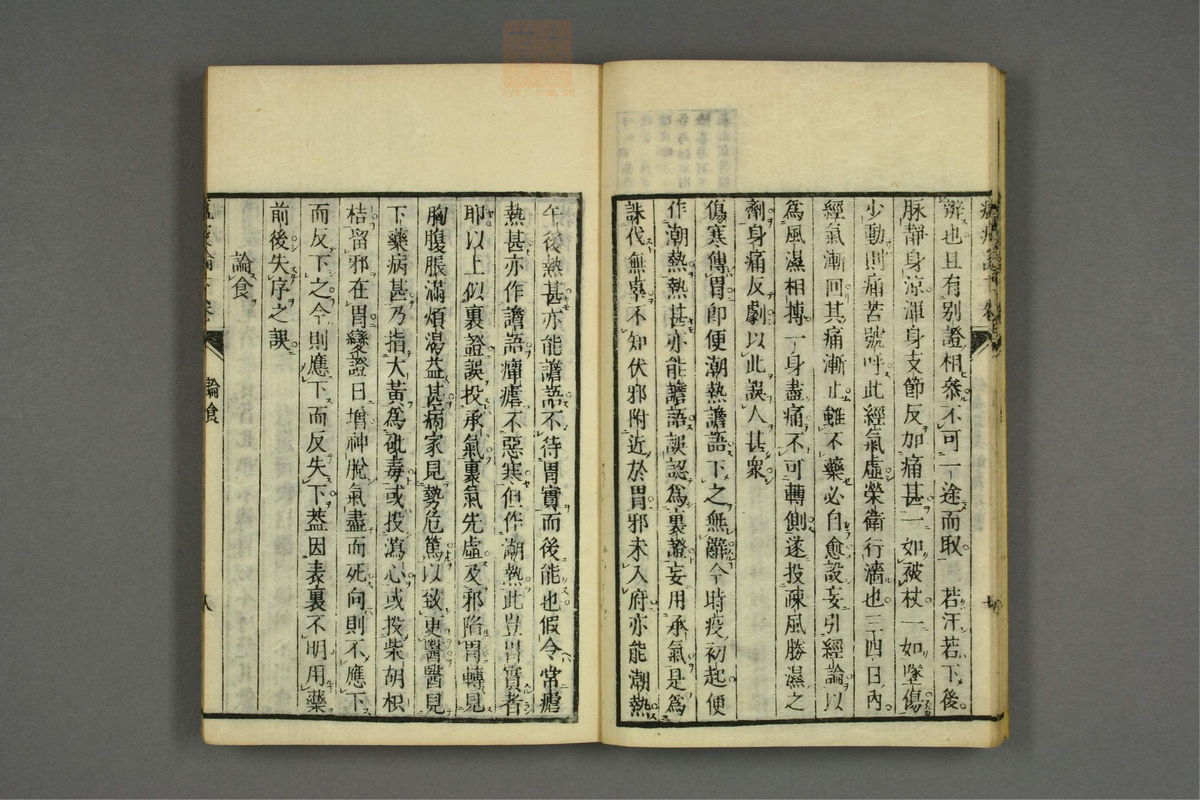 辨也且有別證相叅不可一途而取 若汗若下後
脉靜身凉渾身支節反加痛甚一如被杖一如墜傷
少動則痛苦號呼此經氣虛榮衛行濇也三四日內
經氣漸回其痛漸止雖不藥必自愈設妄引經論以
爲風濕相搏一身盡痛不可轉側遂投疎風勝濕之
劑身痛反劇以此誤人甚衆
傷寒傳胃卽便潮熱譫語下之無辭今時疫初起便
作潮熱熱甚亦能譫語誤認爲裏證妄用承氣是爲
誅伐無辜不知伏邪附近於胃邪未入府亦能潮熱
午後熱甚亦能譫語不待胃實而後能也假令常瘧
熱甚亦作譫語癉瘧不惡寒但作潮熱此豈胃實者
耶以上似裏證誤投承氣裏氣先虛及邪陷胃轉見
胸腹脹滿煩渴益甚病家見勢危篤以致更醫醫見
下藥病甚乃指大黃爲砒毒或投瀉心或投柴胡枳
桔留邪在胃變證日增神脫氣盡而死向則不應下
而反下之今則應下而反失下葢因表裏不明用藥
前後失序之誤
論食
論食
八